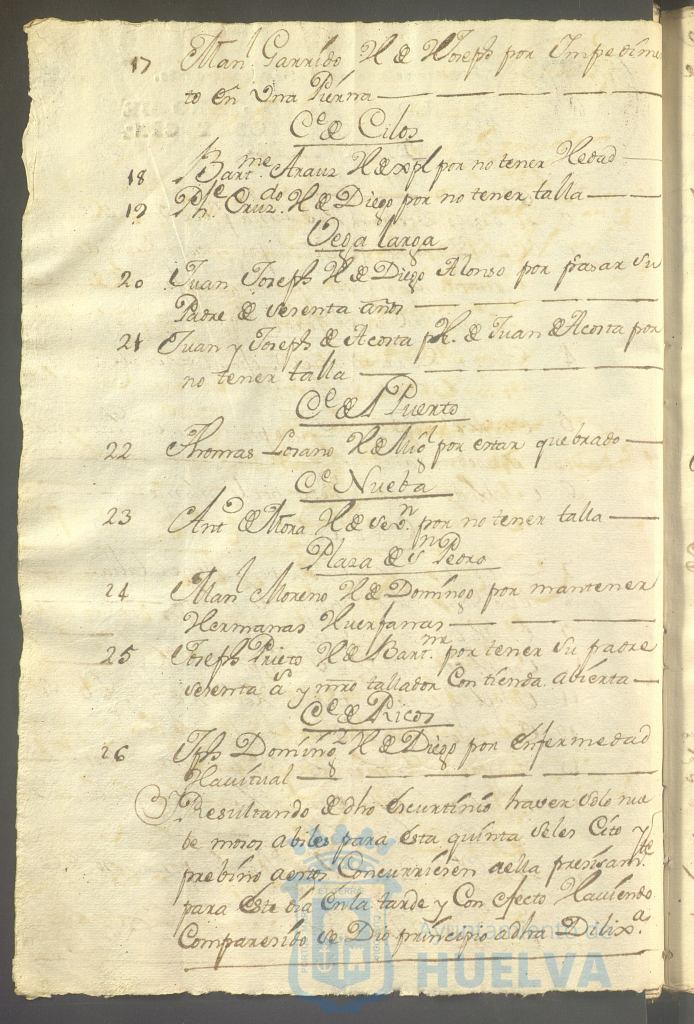 17 Man.l Garrido H. de Joseph por Impedimen
to en Una Pierna
C.e de Cilos
18 Bart.me Arauz H. de xpl por no tener Hedad
19 Ph.e Cruz.do H. de Diego por no tener talla
Vega larga
20 Juan Joseph H. de Diego Alonso por pasar su
Padre de sesenta años
21 Juan y Joseph de Acosta H. de Juan de Acosta por
no tener talla
C.e del Puerto
22 Thomas Losano H. de Mig.l por estar quebrado
C.e Nueba
23 Ant.o de Mora H. de Seb.n por no tener talla
Plaza de S.n Pedro
24 Man.l Moreno H. de Domingo por mantener
Hermanas Huerfanas
25 Joseph Prieto H. de Bart.me por tener su padre
sesenta a.s y mro tallador con tienda abierta
C.e de Ricos
26 Jph Doming.z H. de Diego por enfermedad
Havitual
Resultando de dho escurtinio haver solo nue
be mosos abiles para esta quinta seles Cito y
prebino a estos Concurriesen a ella presisam.te
para este dia en la tarde y Con efecto Haviendo
Comparesido se Dio principio a dha Dilix.a
Ayuntamiento de
HUELVA